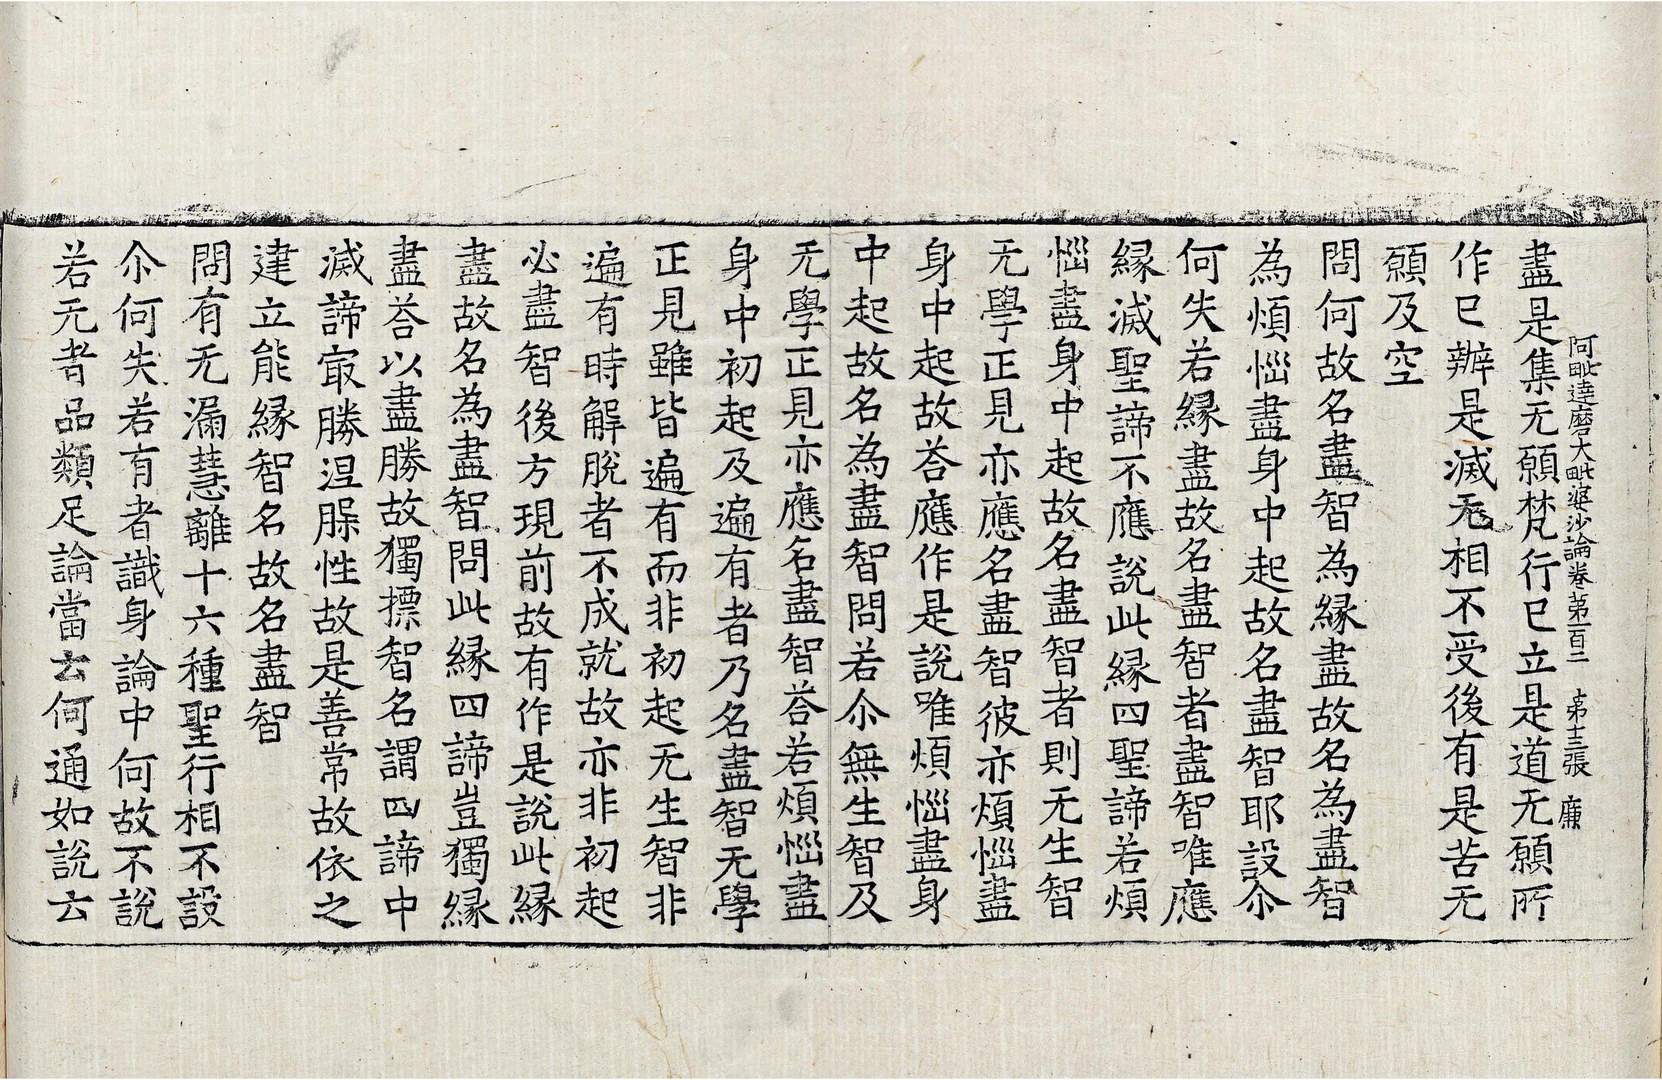 阿毗達磨大毗婆沙論卷第一百二　第十三張　廉
盡是集无願梵行已立是道无願所
作已辦是滅无相不受後有是苦无
願及空
問何故名盡智為緣盡故名為盡智
為煩惱盡身中起故名盡智耶設尒
何失若緣盡故名盡智者盡智唯應
緣滅聖諦不應說此緣四聖諦若煩
惱盡身中起故名盡智者則无生智
无學正見亦應名盡智彼亦煩惱盡
身中起故荅應作是說唯煩惱盡身
中起故名為盡智問若尒無生智及
无學正見亦應名盡智荅若煩惱盡
身中初起及遍有者乃名盡智无學
正見雖皆遍有而非初起无生智非
遍有時解脫者不成就故亦非初起
必盡智後方現前故有作是說此緣
盡故名為盡智問此緣四諦豈獨緣
盡荅以盡勝故獨摽智名謂四諦中
滅諦冣勝涅槃性故是善常故依之
建立能緣智名故名盡智
問有无漏慧離十六種聖行相不設
尒何失若有者識身論中何故不說
若无者品類足論當云何通如說云